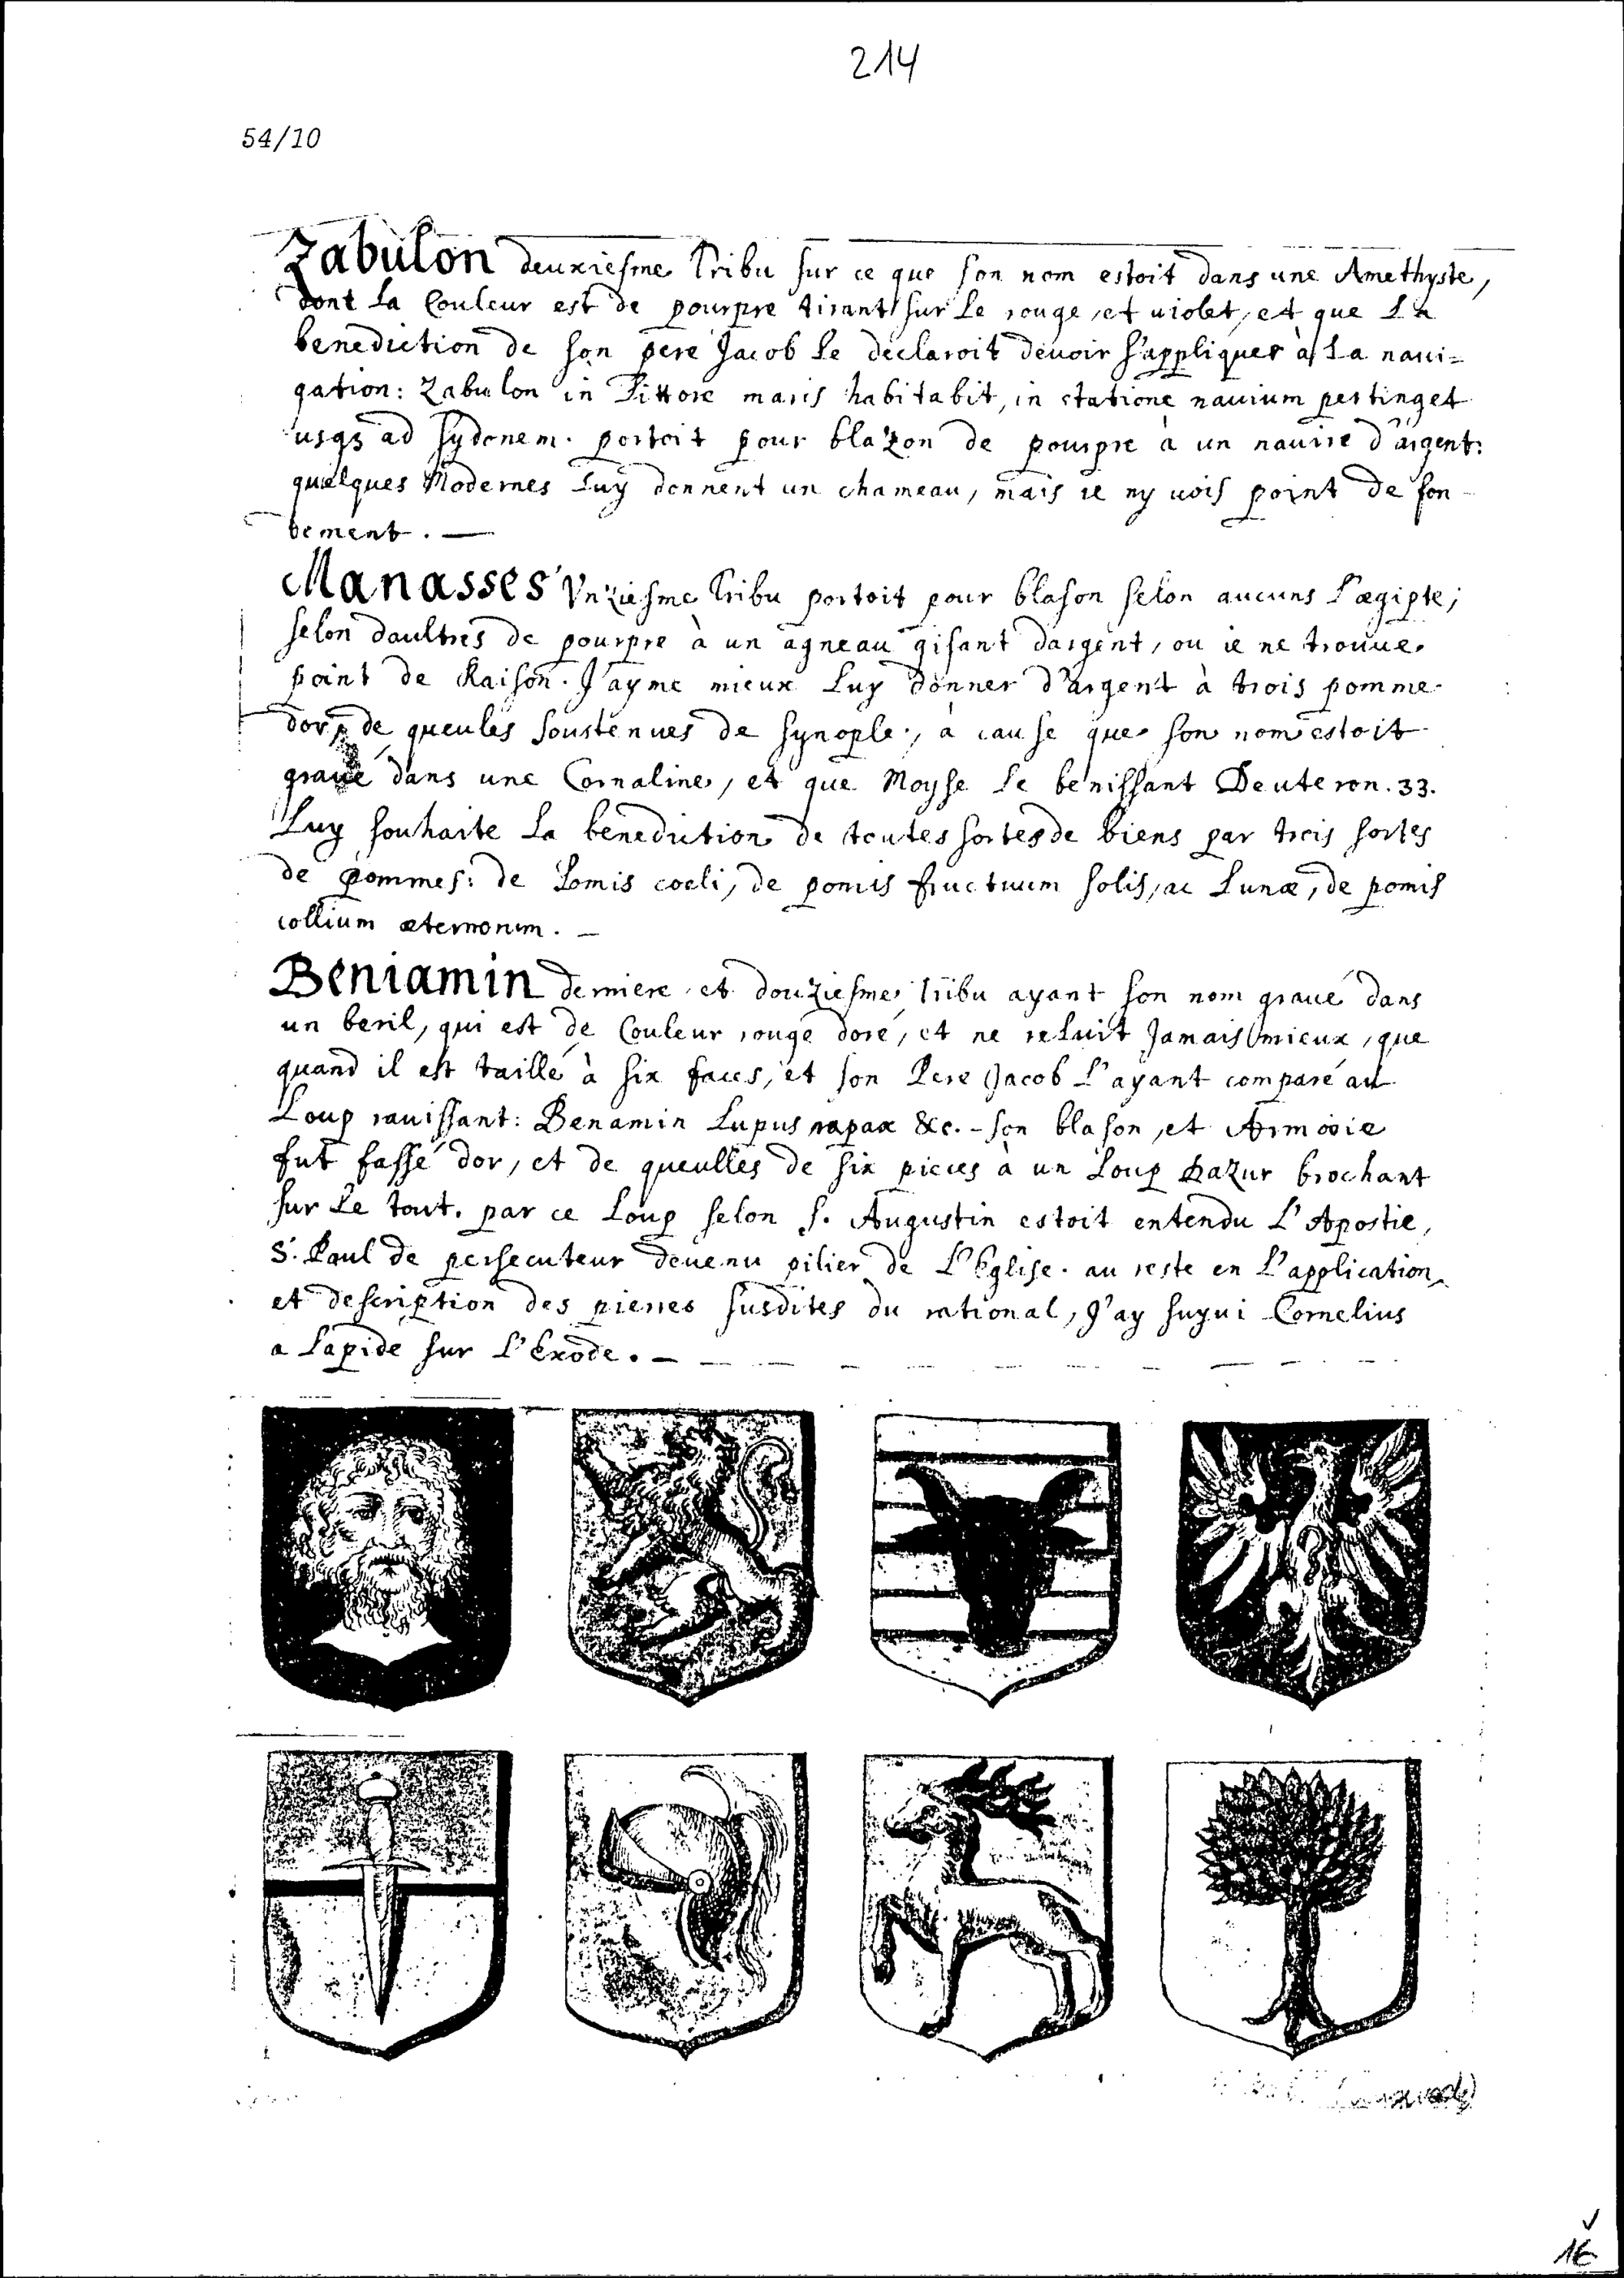 214
54/10
Zabulon deuxiesme Tribu sur ce que son nom estoit dans une Amethyste,
dont la Couleur est de pourpre tirant sur le rouge, et uiolet, et que la
benediction de son pere Jacob le declaroit deuoir s'appliquer à la naui=
gation: Zabulon in Littore maris habitabit, in statione nauium pertinget
usqz ad sydonem. portoit pour blazon de pourpre à un nauire d'argent:
quelques Modernes luy donnent un chameau, mais ie ny uois point de fon
dement. —
Manasses Vnziesme Tribu portoit pour blason selon aucuns l'ægipte;
selon daultres de pourpre à un agneau gisant dargent, ou ie ne trouue
point de Raison. J'ayme mieux luy donner d'argent à trois pomme
dor, de gueules soustenues de synople, à cause que son nom estoit
graué dans une Cornaline, et que Moyse le benissant Deuteron. 33.
Luy souhaite la benediction de toutes sortes de biens par trois sortes
de pommes: de Pomis coeli, de pomis fructuum solis, ac Lunæ, de pomis
collium æternorum. —
Beniamin derniere et douziesme Tribu ayant son nom graué dans
un beril, qui est de Couleur rouge doré, et ne reluit Jamais mieux, que
quand il est taillé à six faces, et son Pere Jacob l'ayant comparé au
Loup rauissant: Benamin Lupus rapax &c. - son blason, et Armoirie
fut fassé dor, et de gueulles de six pieces à un Loup dazur brochant
sur le tout. par ce Loup selon s. Augustin estoit entendu L'Apostre,
S. Paul de persecuteur deuenu pilier de L'Eglise. au reste en l'application
et description des pierres susdites du rational, J'ay suyui Cornelius
a Lapide sur L'Exode. —
16